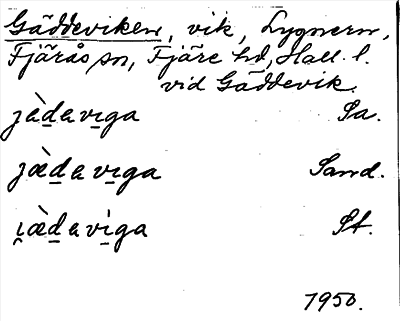 Gäddeviken, vik, Lygnern,
Fjärås sn, Fjäre hd, Hall. l.
vid Gäddevik.
jæ̀d̲a vi̲ga Sa.
jæ̀d̲a vi̲ga Sand.
i̯æ̀d̲a vi̲ga St.
1950.